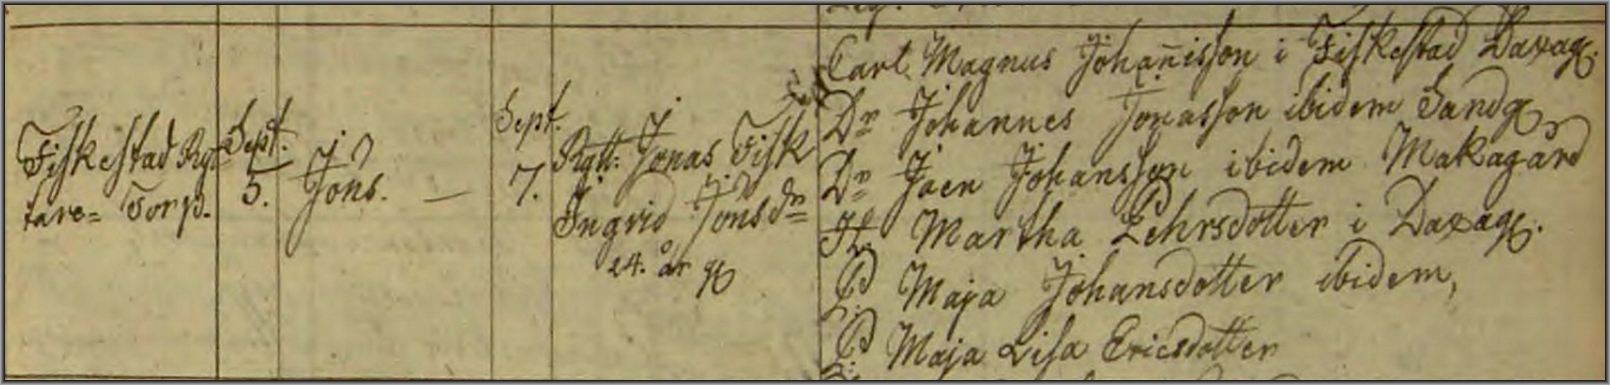 Fiskestad Ryt-
tare= Torp.
Sept.
5.
Jöns. —
Sept.
7.
Rytt: Jonas Fisk
Ingrid Jönsdr
24. år g
Carl Magnus Johannisson i Fiskestad Daxag.
Dr Johannes Jonasson ibidem Sandg
Dr Jaen Johansson ibidem Makagård
H. Martha Pehrsdotter i Daxag.
P Maja Johansdotter ibidem,
P Maja Lisa Ericsdotter